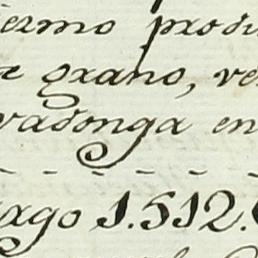 iermo produ
e grano, ve
vadonga en
argo 1.512.